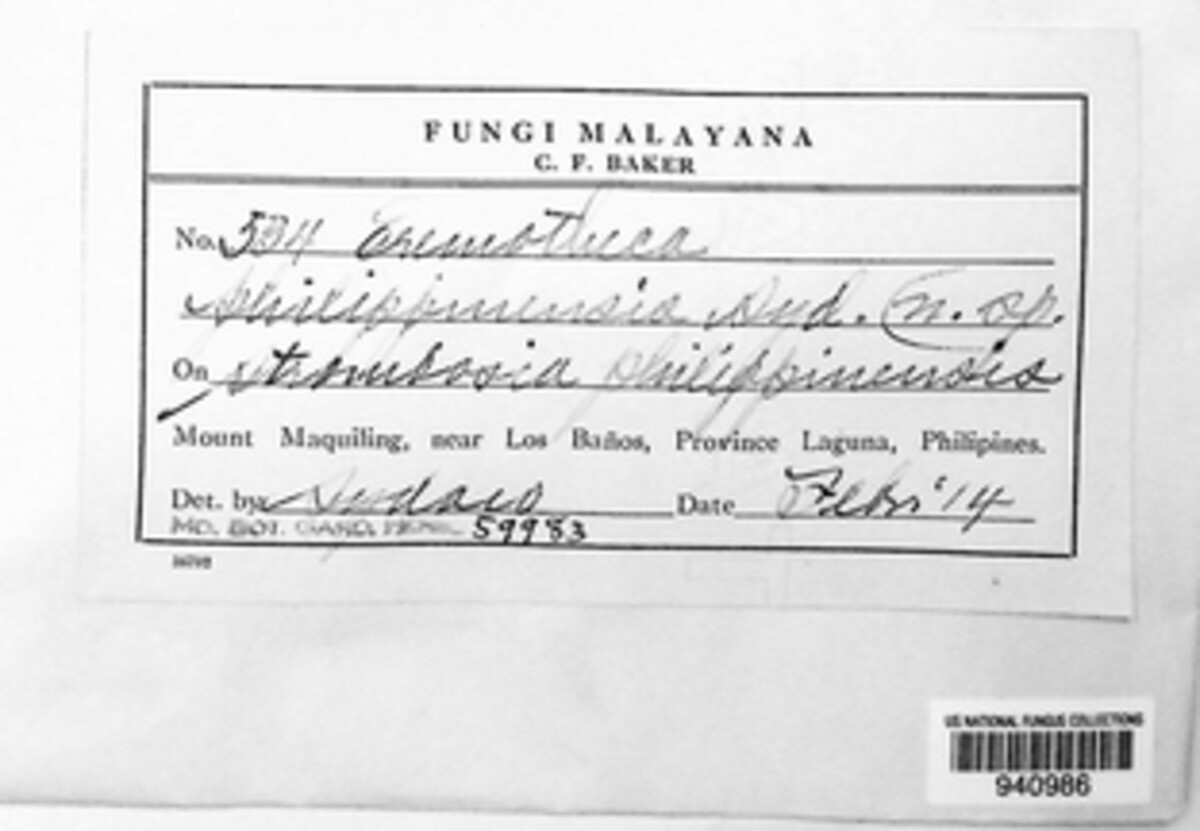 FUNGI MALAYANA
C. F. BAKER
No. 534 Eremotheca
philippinensis Syd. (n. sp.
On Strombosia philippinensis
Mount Maquiling, near Los Baños, Province Laguna, Philipines.
Det. by Sydow Date Febr '14
MO. BOT. GARD. HERB. 59983
US NATIONAL FUNGUS COLLECTIONS
940986